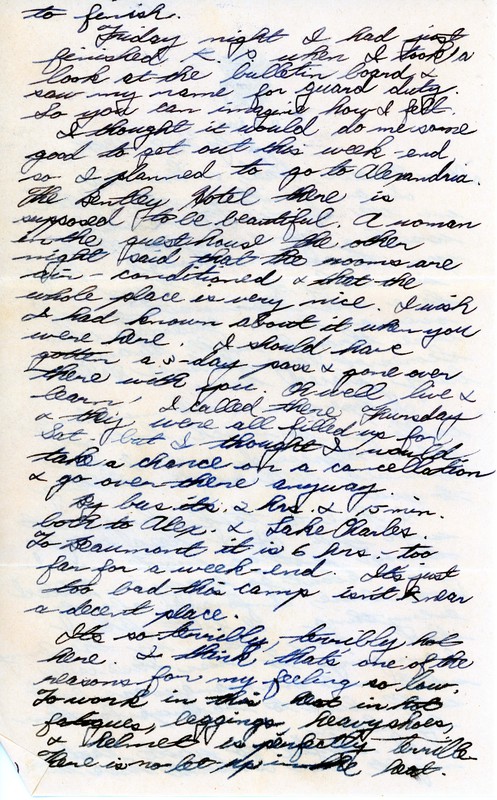 to finish.
Friday night I had just
finished K. P. when I took a
look at the bulletin board &
saw my name for guard duty.
So you can imagine how I felt.
I thought it would do me some
good to get out this week-end
so I planned to go to Alexandria.
The Bentley Hotel there is
supposed to be beautiful. A woman
in the guesthouse the other
night said that the rooms are
air-conditioned & that the
whole place is very nice. I wish
I had known about it when you
were here. I should have
gotten a 3-day pass & gone over
there with you. Oh well, live &
learn. I called there Thursday
& they were all filled up for
Sat. but I thought I would
take a chance on a cancellation
& go over there anyway.
By bus its 2 hrs. & 15 min.
both to Alex. & Lake Charles.
To Beaumont it is 6 hrs. - too
far for a week-end. It's just
too bad this camp isn't near
a decent place.
It's so terribly, terribly hot
here. I think that's one of the
reasons for my feeling so low.
To work in this heat in hot
fatigues, leggings, heavy shoes,
& helmet is perfectly terrible.
There is no let up in the heat.